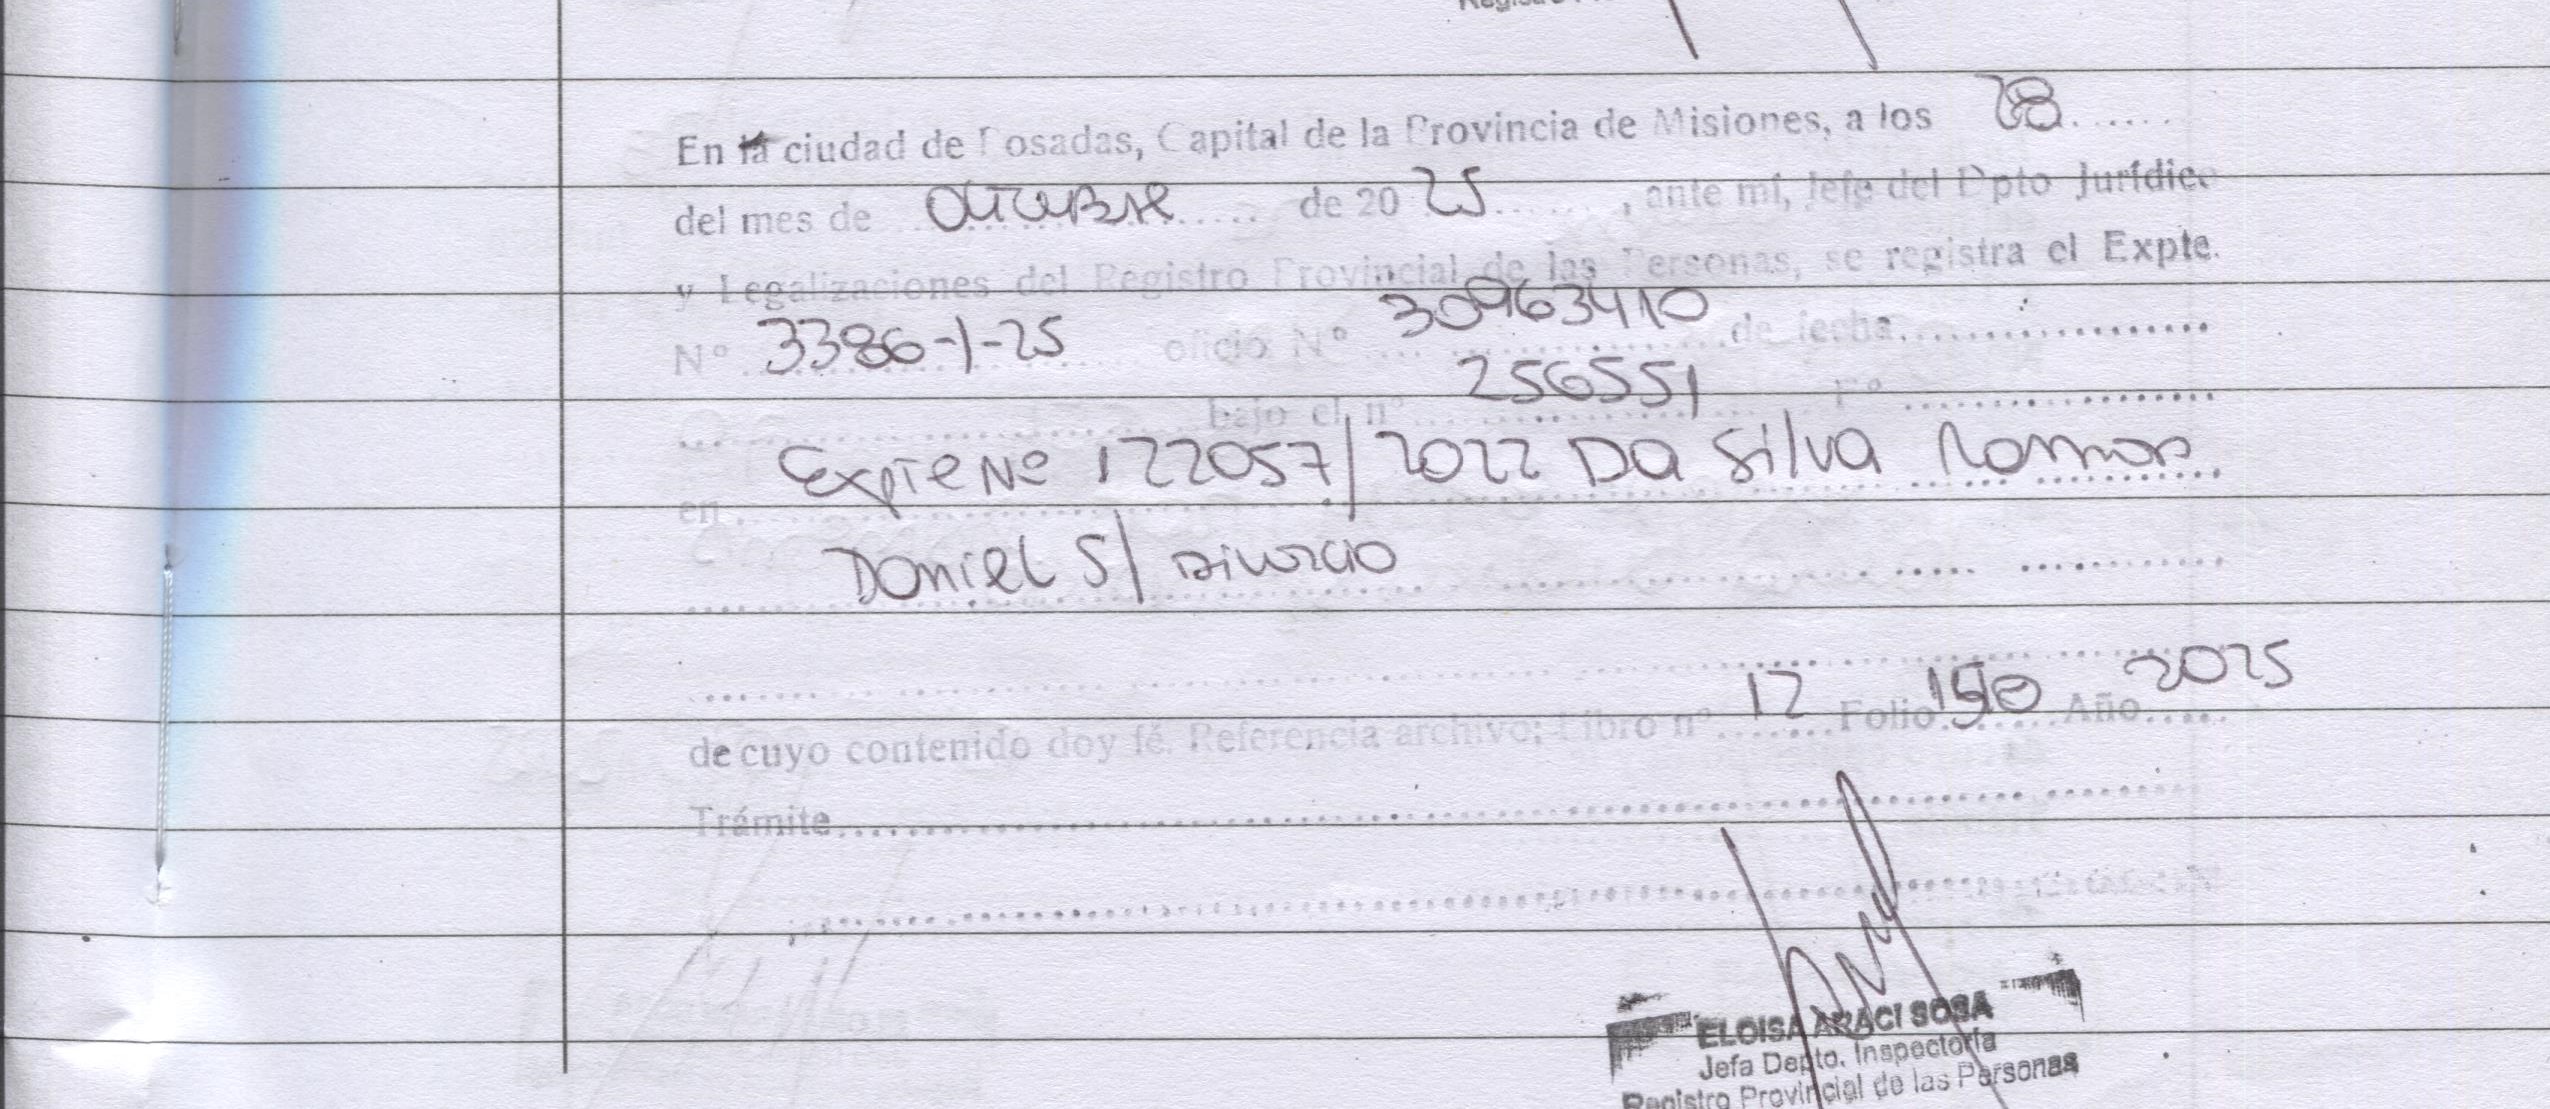 En la ciudad de Posadas, Capital de la Provincia de Misiones, a los 28......
del mes de octubre ..... de 20 25 ......, ante mi, Jefe del Dpto Jurídico
y Legalizaciones del Registro Provincial de las Personas, se registra el Expte.
Nº 3386-1-25 oficio Nº 30963410 de fecha....................
bajo el nº 256551 Fº ....................
en Expte Nº 122057/2022 Da Silva Ramon
Daniel S/ Divorcio
de cuyo contenido doy fé. Referencia archivo; Libro nº 12 Folio 190 Año 2025
Trámite....................
ELOISA ARACI SOSA
Jefa Depto. Inspectoría
Registro Provincial de las Personas